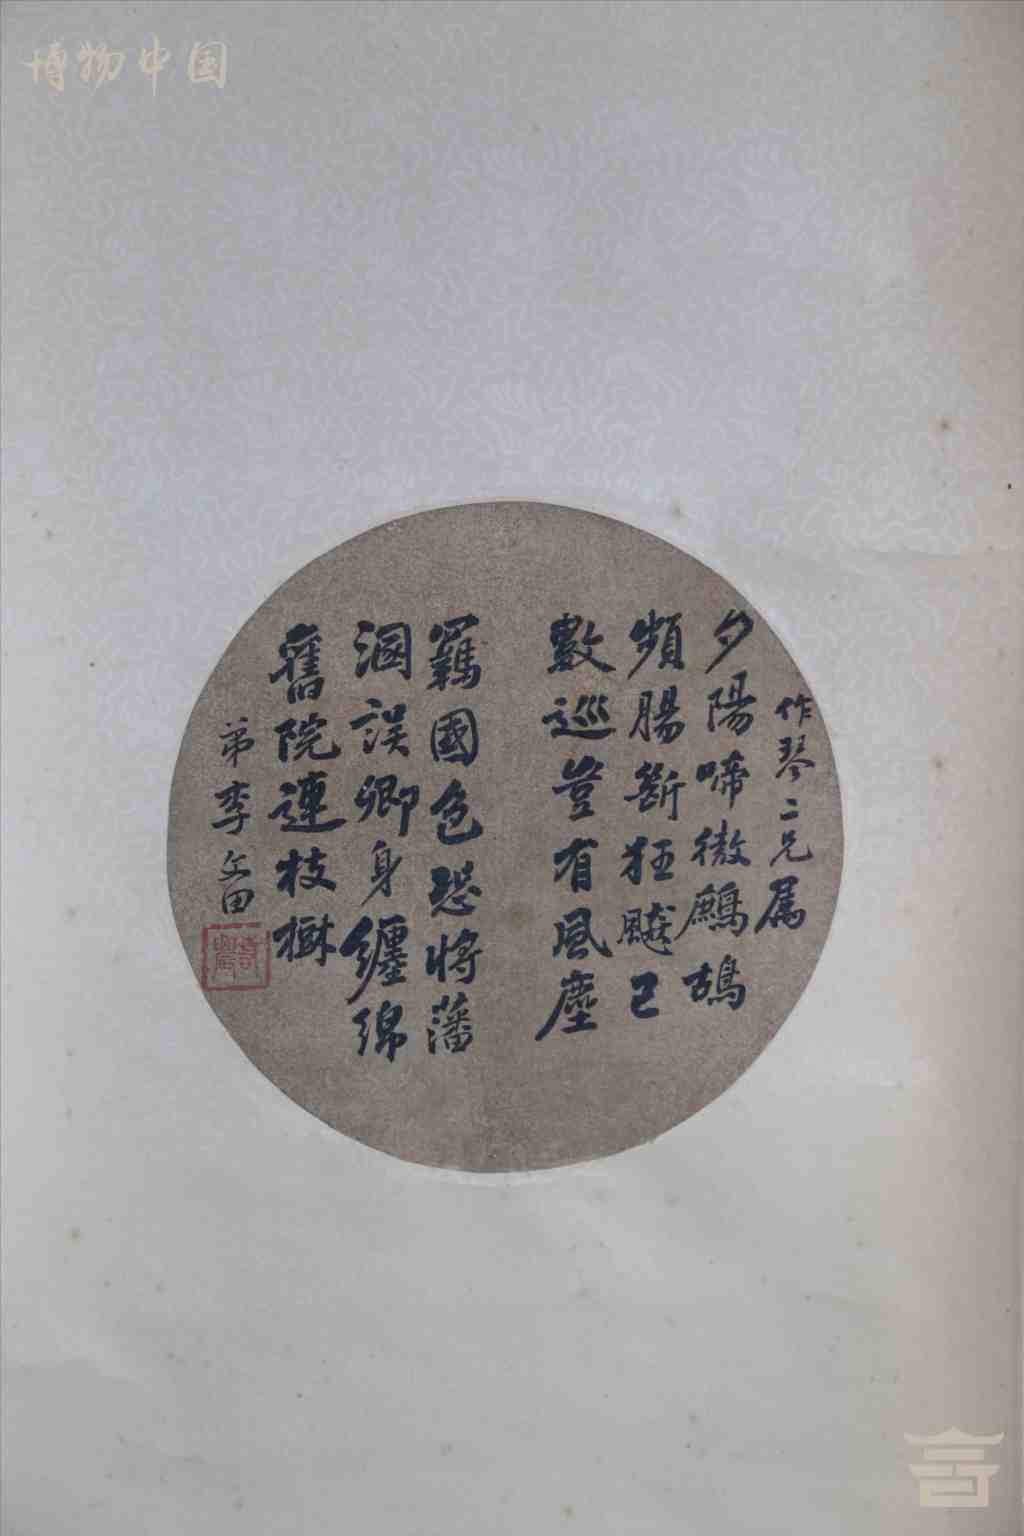 博物中国
作琴二兄属
夕陽啼徹鷓鴣
頻腸斷狂飈已
數巡豈有風塵
羈國色恐將藩
溷誤卿身纏綿
舊院連枝樹
弟李文田